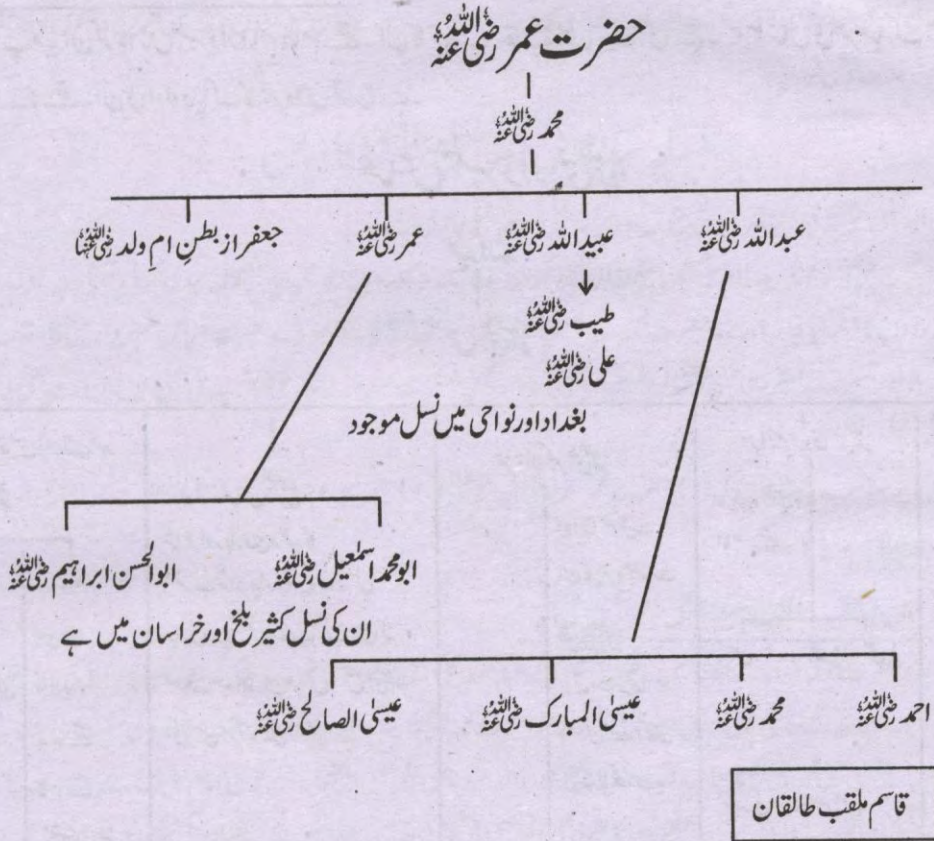 حضرت عمر رضی اللہ عنہ
محمد رضی اللہ عنہ
عبد اللہ رضی اللہ عنہ عبید اللہ رضی اللہ عنہ عمر رضی اللہ عنہ جعفر از بطنِ ام ولد رضی اللہ عنہا
طیب رضی اللہ عنہ
علی رضی اللہ عنہ
بغداد اور نواحی میں نسل موجود
ابو محمد اسمٰعیل رضی اللہ عنہ ابوالحسن ابراہیم رضی اللہ عنہ
ان کی نسل کثیر بلخ اور خراسان میں ہے
احمد رضی اللہ عنہ محمد رضی اللہ عنہ عیسیٰ المبارک رضی اللہ عنہ عیسیٰ الصالح رضی اللہ عنہ
قاسم ملقب طالقان